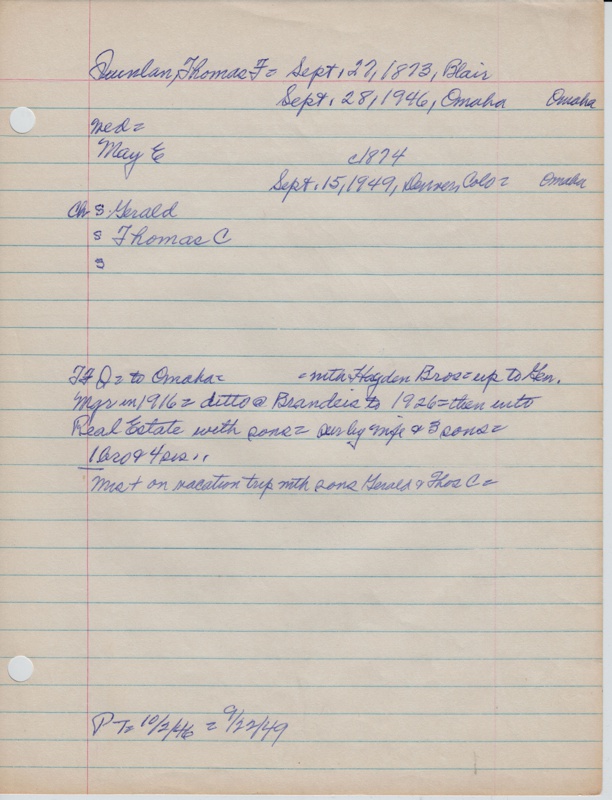 Quinlan, Thomas F = Sept. 27, 1873, Blair
Sept. 28, 1946, Omaha Omaha
Wed =
May E c1874
Sept. 15, 1949, Denver, Colo = Omaha
Ch S Gerald
S Thomas C
S
TF Q = to Omaha = = with Hayden Bros = up to Gen.
Mgr in 1916 = ditto @ Brandeis to 1926 = then into
Real Estate with sons = sur by wife & 3 sons =
1 bro & 4 sis..
Mrs + on vacation trip with sons Gerald & Thos C =
PT = 10/2/46 = 9/22/49